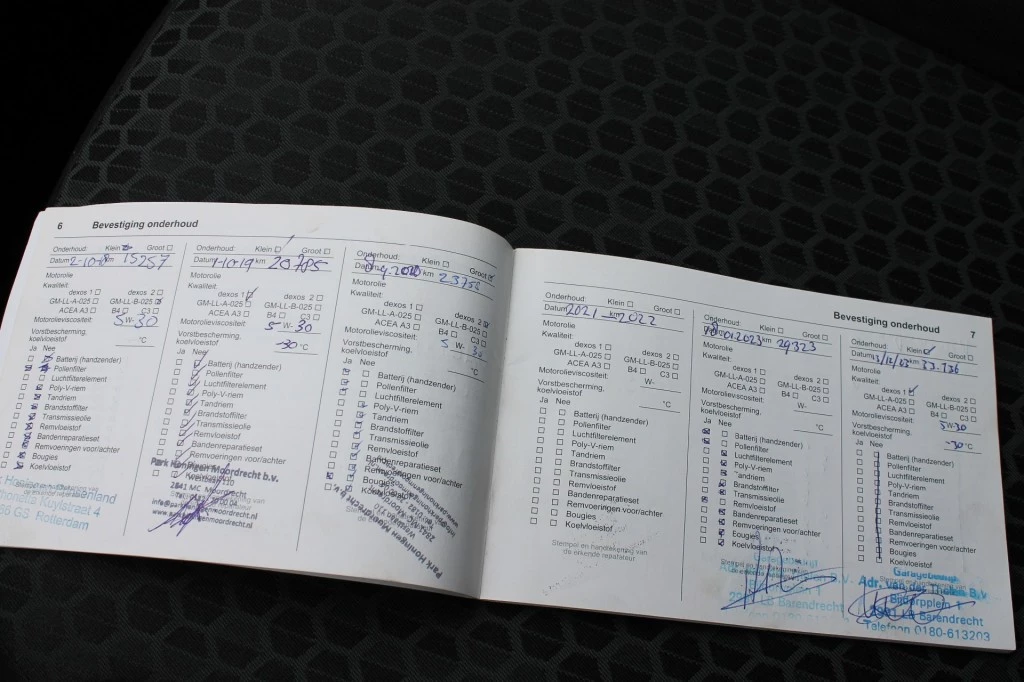 6 Bevestiging onderhoud
Onderhoud: Klein Groot
Datum km 15257
Motorolie
Kwaliteit:
dexos 1 dexos 2
GM-LL-A-025 GM-LL-B-025
ACEA A3 B4 C3
Motorolieviscositeit: 5W-30
Vorstbescherming, koelvloeistof °C
Ja Nee
Batterij (handzender)
Pollenfilter
Luchtfilterelement
Poly-V-riem
Tandriem
Brandstoffilter
Transmissieolie
Remvloeistof
Bandenreparatieset
Remvoeringen voor/achter
Bougies
Koelvloeistof
Rotterdam
Onderhoud: Klein Groot
Datum 1-10-19 km 20785
Motorolie
Kwaliteit:
dexos 1 dexos 2
GM-LL-A-025 GM-LL-B-025
ACEA A3 B4 C3
Motorolieviscositeit: 5W-30
Vorstbescherming, koelvloeistof -30 °C
Ja Nee
Batterij (handzender)
Pollenfilter
Luchtfilterelement
Poly-V-riem
Tandriem
Brandstoffilter
Transmissieolie
Remvloeistof
Bandenreparatieset
Remvoeringen voor/achter
Park Honingen Moordrecht b.v.
2841 MC Moordrecht
Onderhoud: Klein Groot
Datum km
Motorolie
Kwaliteit:
dexos 1 dexos 2
GM-LL-A-025 GM-LL-B-025
ACEA A3 B4 C3
Motorolieviscositeit: 5 W- 30
Vorstbescherming, koelvloeistof °C
Ja Nee
Batterij (handzender)
Pollenfilter
Luchtfilterelement
Poly-V-riem
Tandriem
Brandstoffilter
Transmissieolie
Remvloeistof
Bandenreparatieset
Remvoeringen voor/achter
Bougies
Koelvloeistof
Park Honingen Moordrecht b.v.
Bevestiging onderhoud 7
Onderhoud: Klein Groot
Datum 2021 - km 2022
Motorolie
Kwaliteit:
dexos 1 dexos 2
GM-LL-A-025 GM-LL-B-025
ACEA A3 B4 C3
Motorolieviscositeit: W-
Vorstbescherming, koelvloeistof °C
Ja Nee
Batterij (handzender)
Pollenfilter
Luchtfilterelement
Poly-V-riem
Tandriem
Brandstoffilter
Transmissieolie
Remvloeistof
Bandenreparatieset
Remvoeringen voor/achter
Bougies
Koelvloeistof
Stempel en handtekening van
de erkende reparateur
Onderhoud: Klein Groot
01.2023 km 29323
Motorolie
Kwaliteit:
dexos 1 dexos 2
GM-LL-A-025 GM-LL-B-025
ACEA A3 B4 C3
Motorolieviscositeit: W-
Vorstbescherming, koelvloeistof °C
Ja Nee
Batterij (handzender)
Pollenfilter
Luchtfilterelement
Poly-V-riem
Tandriem
Brandstoffilter
Transmissieolie
Remvloeistof
Bandenreparatieset
Remvoeringen voor/achter
Bougies
Koelvloeistof
Barendrecht
Onderhoud: Klein Groot
Datum km 33-736
Motorolie
Kwaliteit:
dexos 1 dexos 2
GM-LL-A-025 GM-LL-B-025
ACEA A3 B4 C3
Motorolieviscositeit: 5W-30
Vorstbescherming, koelvloeistof -30 °C
Ja Nee
Batterij (handzender)
Pollenfilter
Luchtfilterelement
Poly-V-riem
Tandriem
Brandstoffilter
Transmissieolie
Remvloeistof
Bandenreparatieset
Remvoeringen voor/achter
Bougies
Koelvloeistof
Garagebedrijf
Adr. van der Tholen B.V.
Bijdorpplein 1
2991 LB Barendrecht
Telefoon 0180-613203